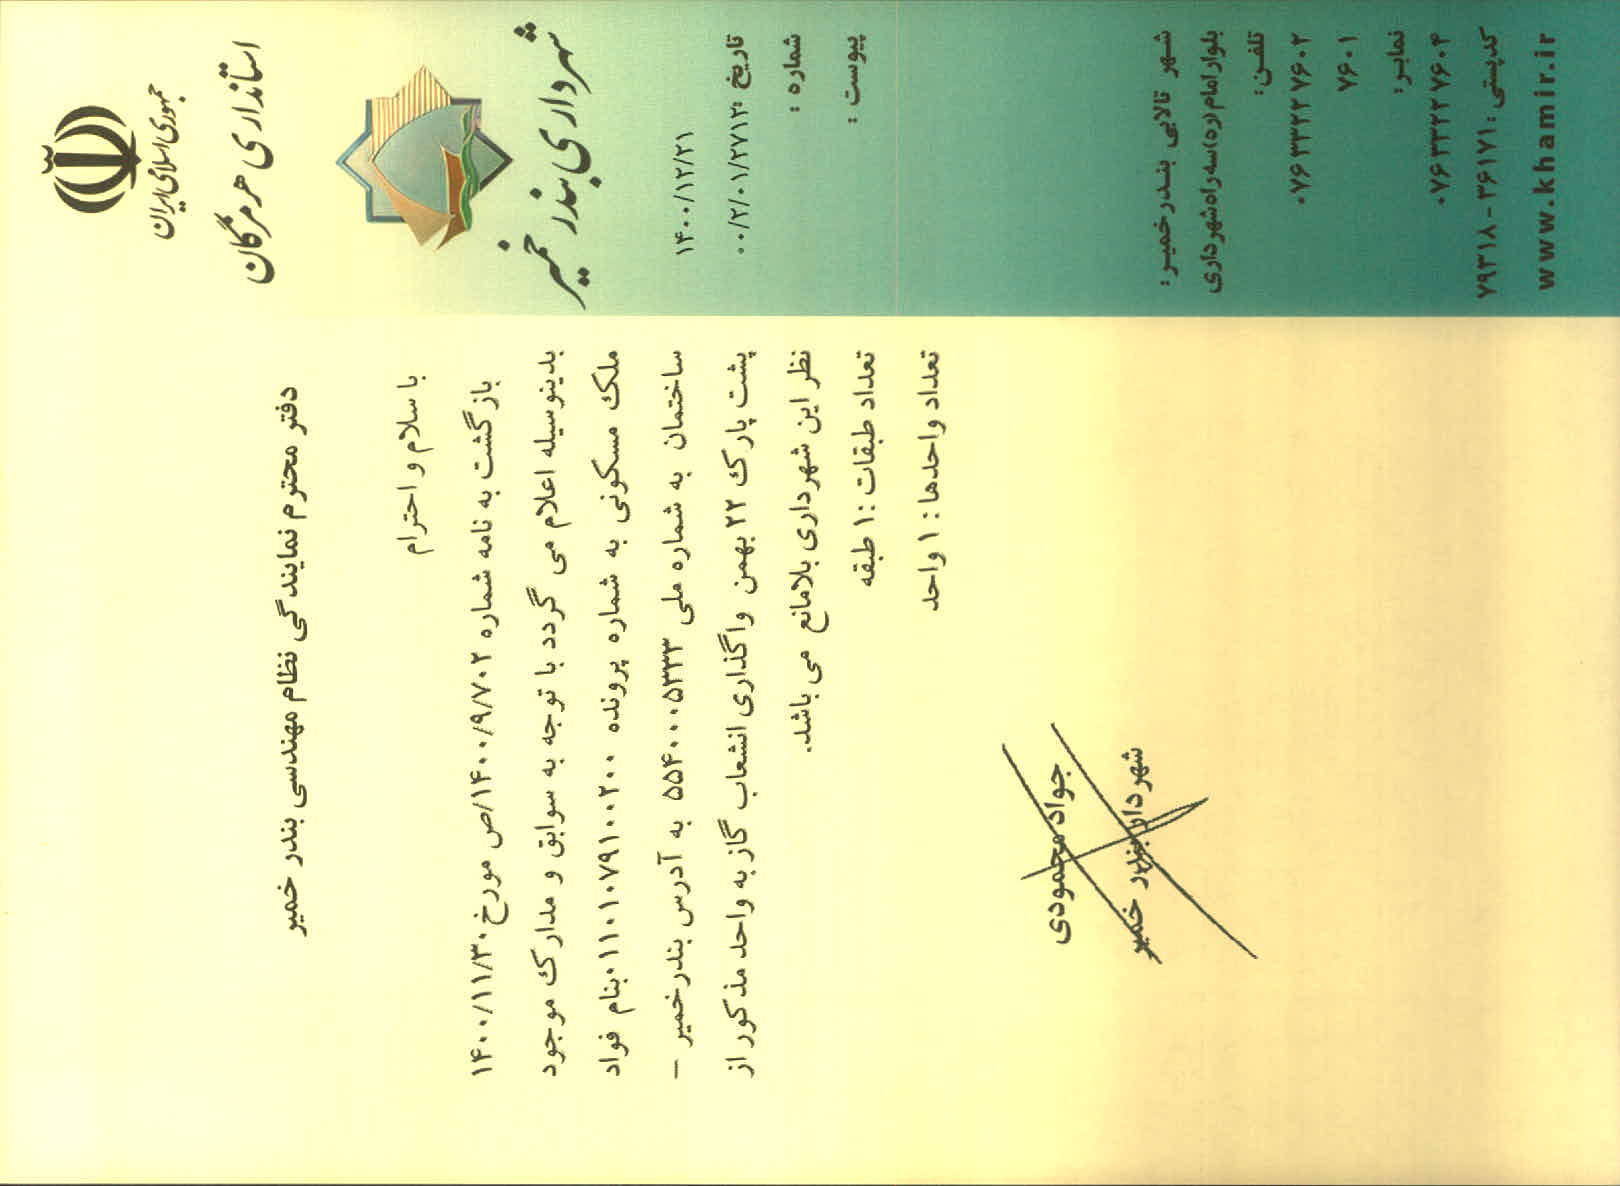 جمهوری اسلامی ایران
استانداری هرمزگان
شهرداری بندر خمیر
۱۴۰۰/۱۲/۲۱
تاریخ :
۰۰/۲/۰۱/۲۷۱۲
شماره :
پیوست :
دفتر محترم نمایندگی نظام مهندسی بندر خمیر
با سلام و احترام
بازگشت به نامه شماره ۱۴۰۰/۹/۷۰۲/ص مورخ ۱۴۰۰/۱۱/۳۰
بدینوسیله اعلام می گردد با توجه به سوابق و مدارک موجود
ملک مسکونی به شماره پرونده ۰۱۱۰۱۰۷۹۱۰۰۲۰۰ بنام فواد
ساختمان به شماره ملی ۵۵۴۰۰۰۵۳۳۳ به آدرس بندرخمیر –
پشت پارک ۲۲ بهمن واگذاری انشعاب گاز به واحد مذکور از
نظر این شهرداری بلامانع می باشد.
تعداد طبقات :۱ طبقه
تعداد واحدها : ۱ واحد
جواد محمودی
شهردار بندر خمیر
شهر تالابی بندرخمیر:
بلوار امام(ره)سه راه شهرداری
تلفن:
۰۷۶۳۳۲۲۷۶۰۲
۷۶۰۱
نمابر:
۰۷۶۳۳۲۲۷۶۰۴
کدپستی: ۳۶۱۷۱ - ۷۹۳۱۸
www.khamir.ir